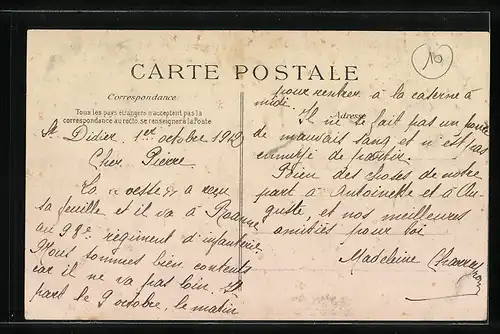 10
CARTE POSTALE
Correspondance
Tous les pays étrangers n'acceptent pas la
correspondance au recto, se renseigner à la Poste
St Didier, 1er octobre 1912
Cher Pierre
La a reçu
sa feuille et il va à Roanne
au 99e régiment d'infanterie.
Nous sommes bien contents
car il ne va pas loin. Il
part le 9 octobre, le matin
pour rentrer à la caserne à
midi.
Adresse
Il ne se fait pas un
de mauvais sang et n'est pas
ennuyé de partir.
Bien des choses de notre
part à Antoinette et à Au-
guste, et nos meilleures
amitiés pour toi
Madeleine